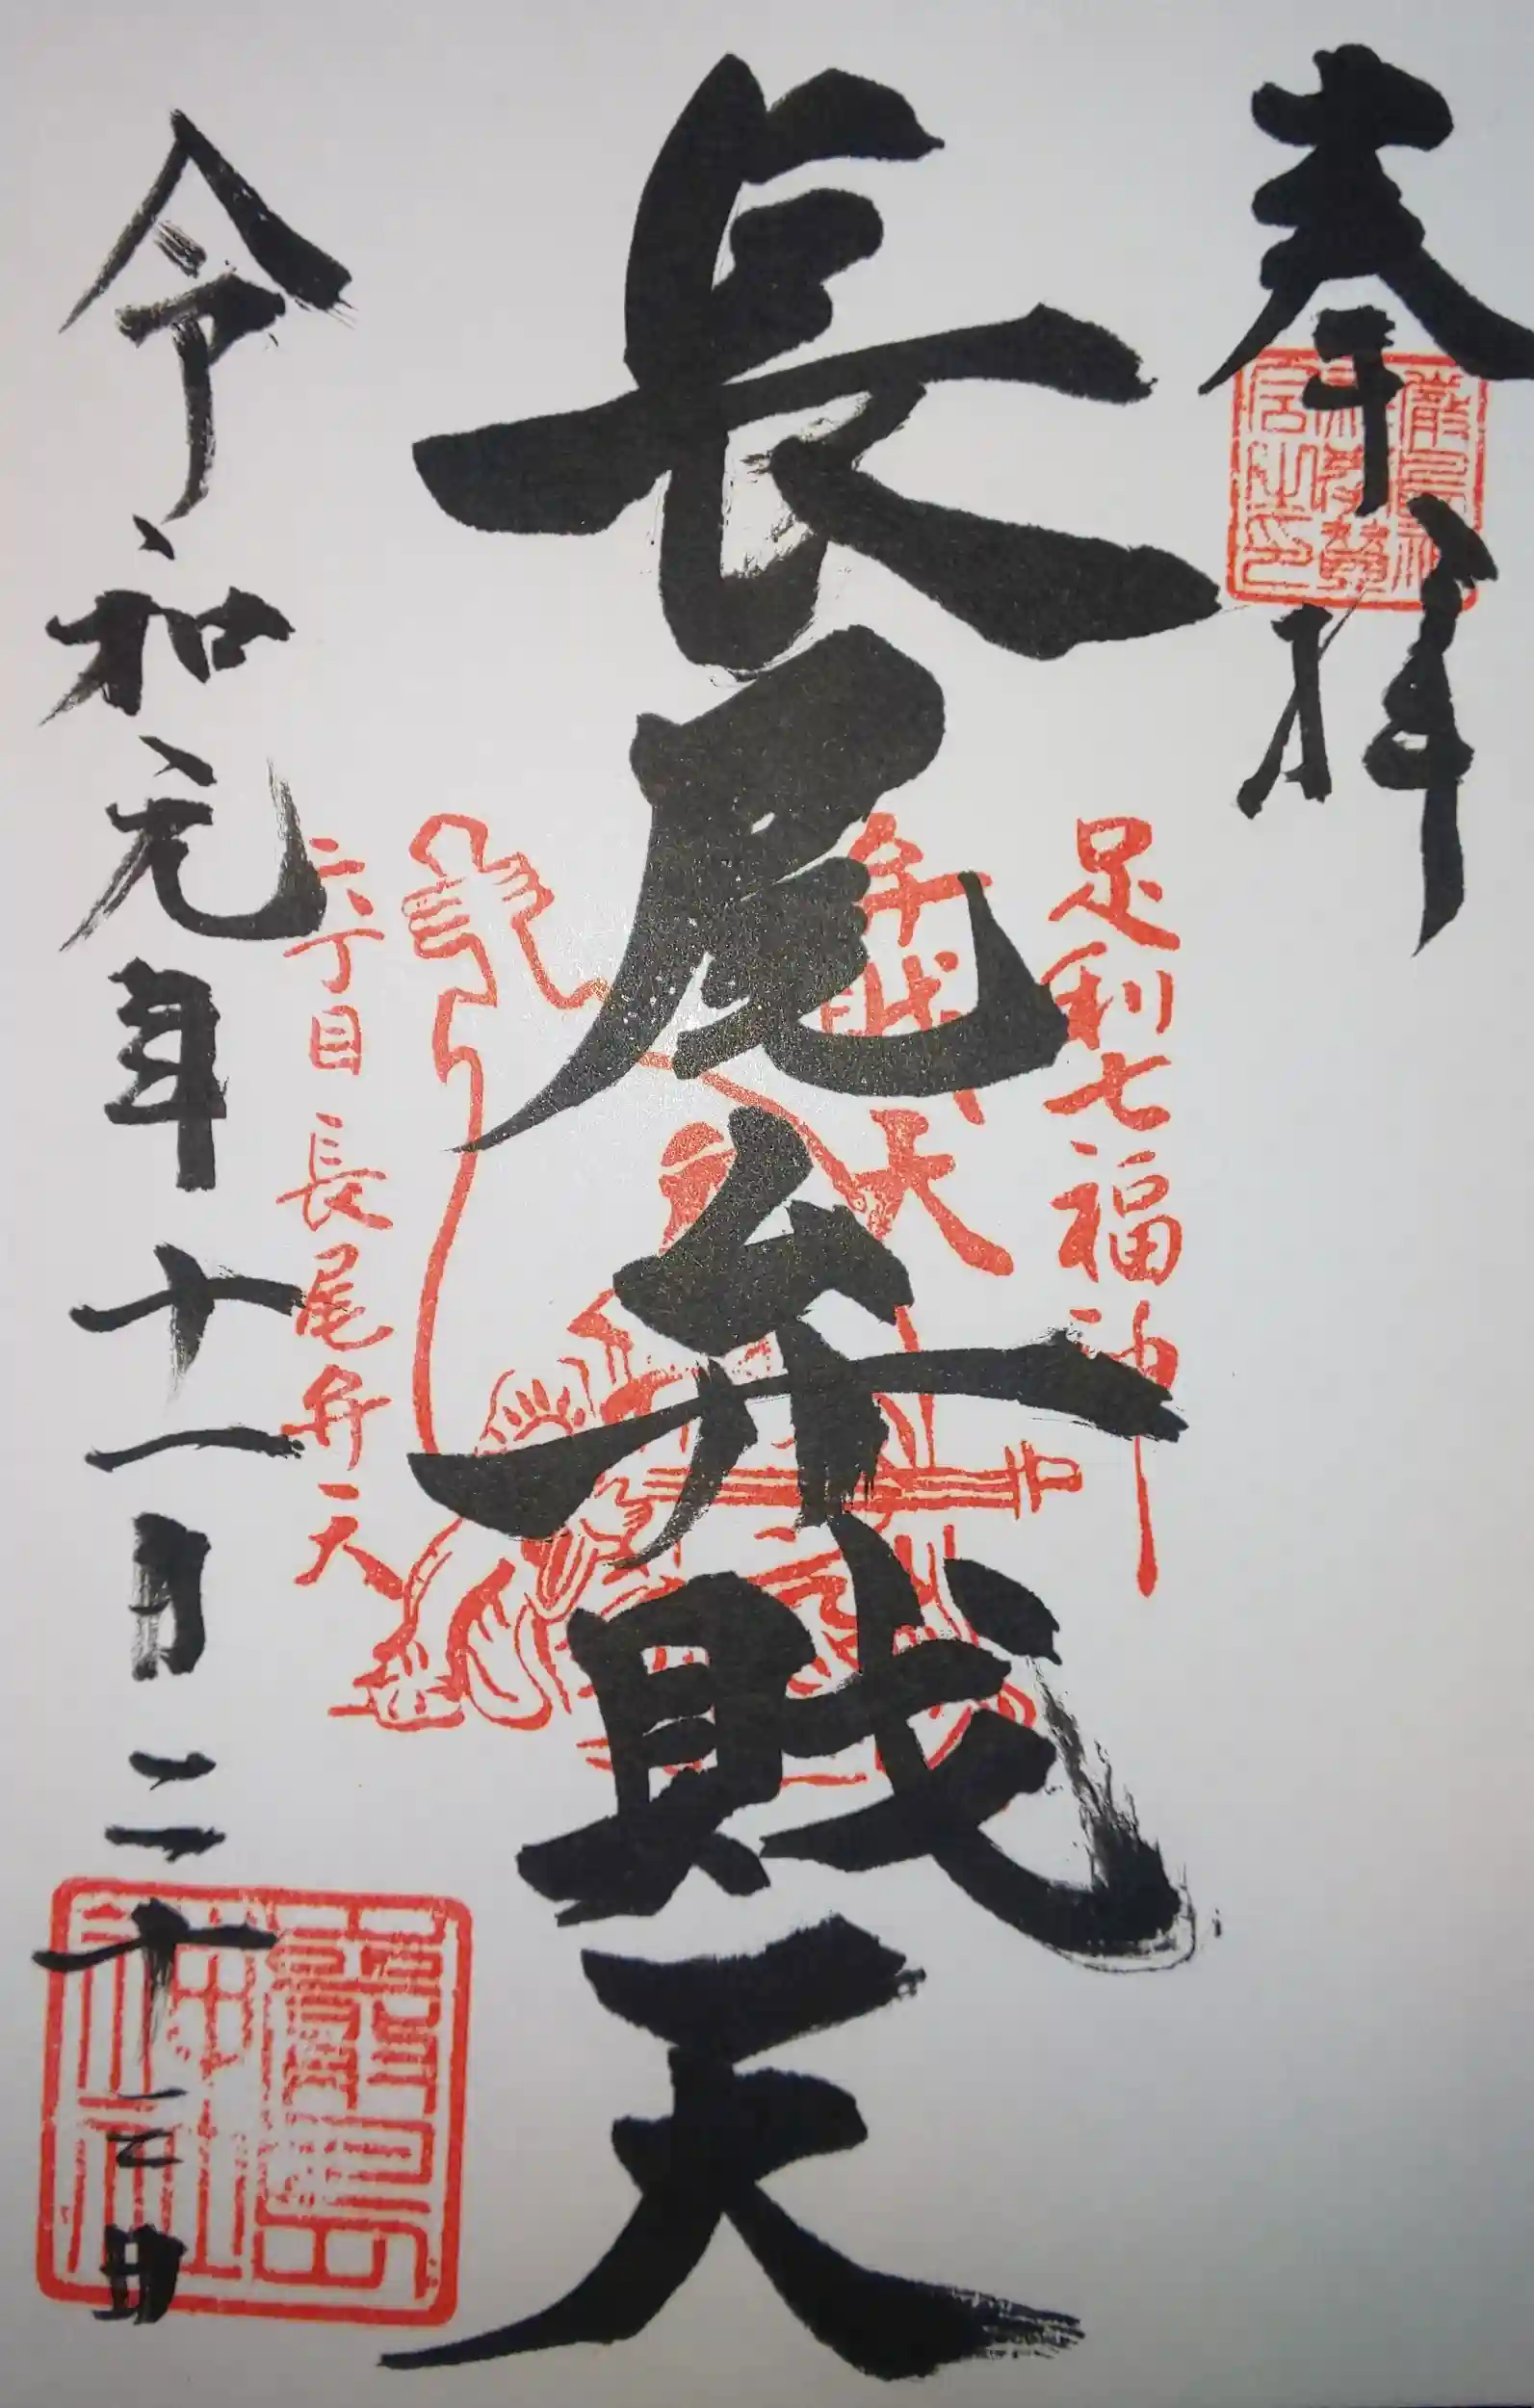 奉拝
足利七福神
弁財天
長尾弁財天
六丁目 長尾弁天
令和元年十一月二十三日
嚴島神社